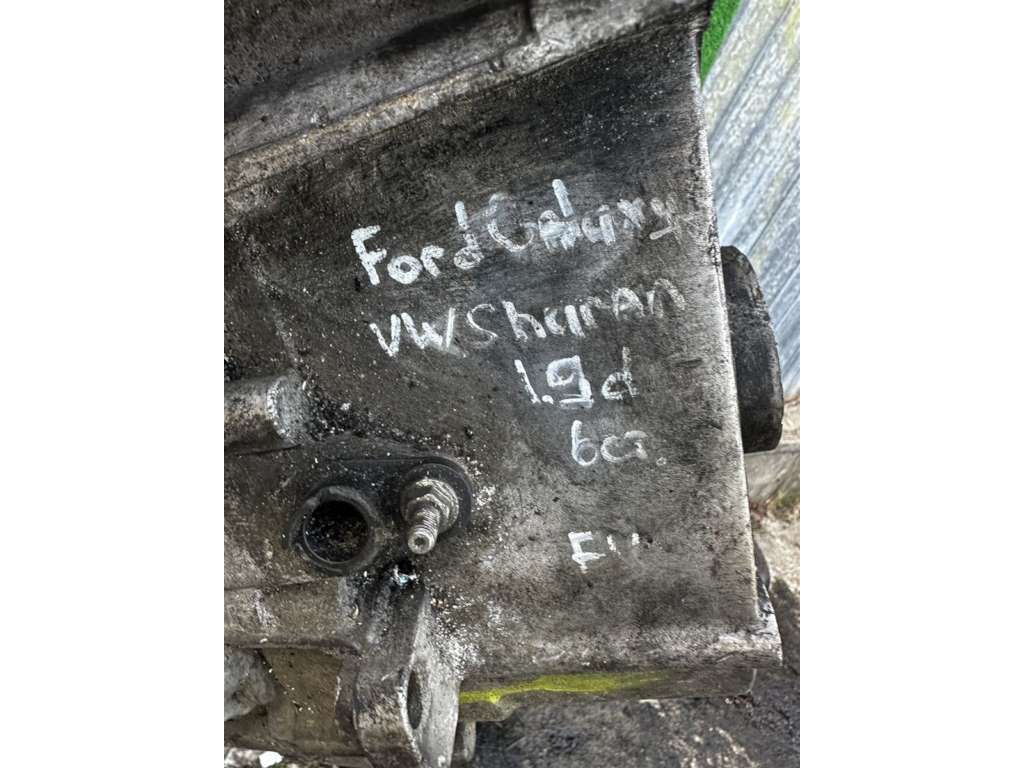 Ford Galaxy
VW Sharan
1.9d
6ст.